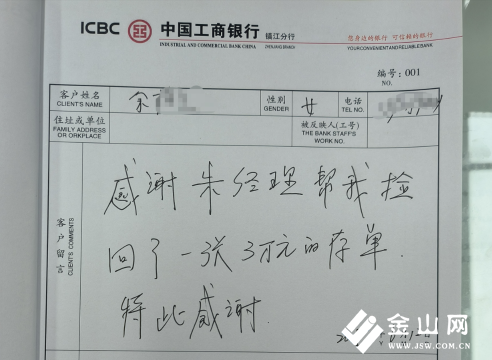 ICBC 中国工商银行 镇江分行
INDUSTRIAL AND COMMERCIAL BANK CHINA ZHENJIANG BRANCH
您身边的银行 可信赖的银行
YOUR CONVENIENT AND RELIABLE BANK
编号: 001
NO.
客户姓名
CLIENT'S NAME
余
性别
GENDER
女
电话
TEL NO.
住址或单位
FAMILY ADDRESS
OR ORKPLACE
被反映人(工号)
THE BANK STAFF'S
WORK NO.
客户留言
CLIENT'S COMMENTS
感谢朱经理帮我捡
回了一张3万元的存单.
特此感谢.
金山网
WWW.JSW.COM.CN